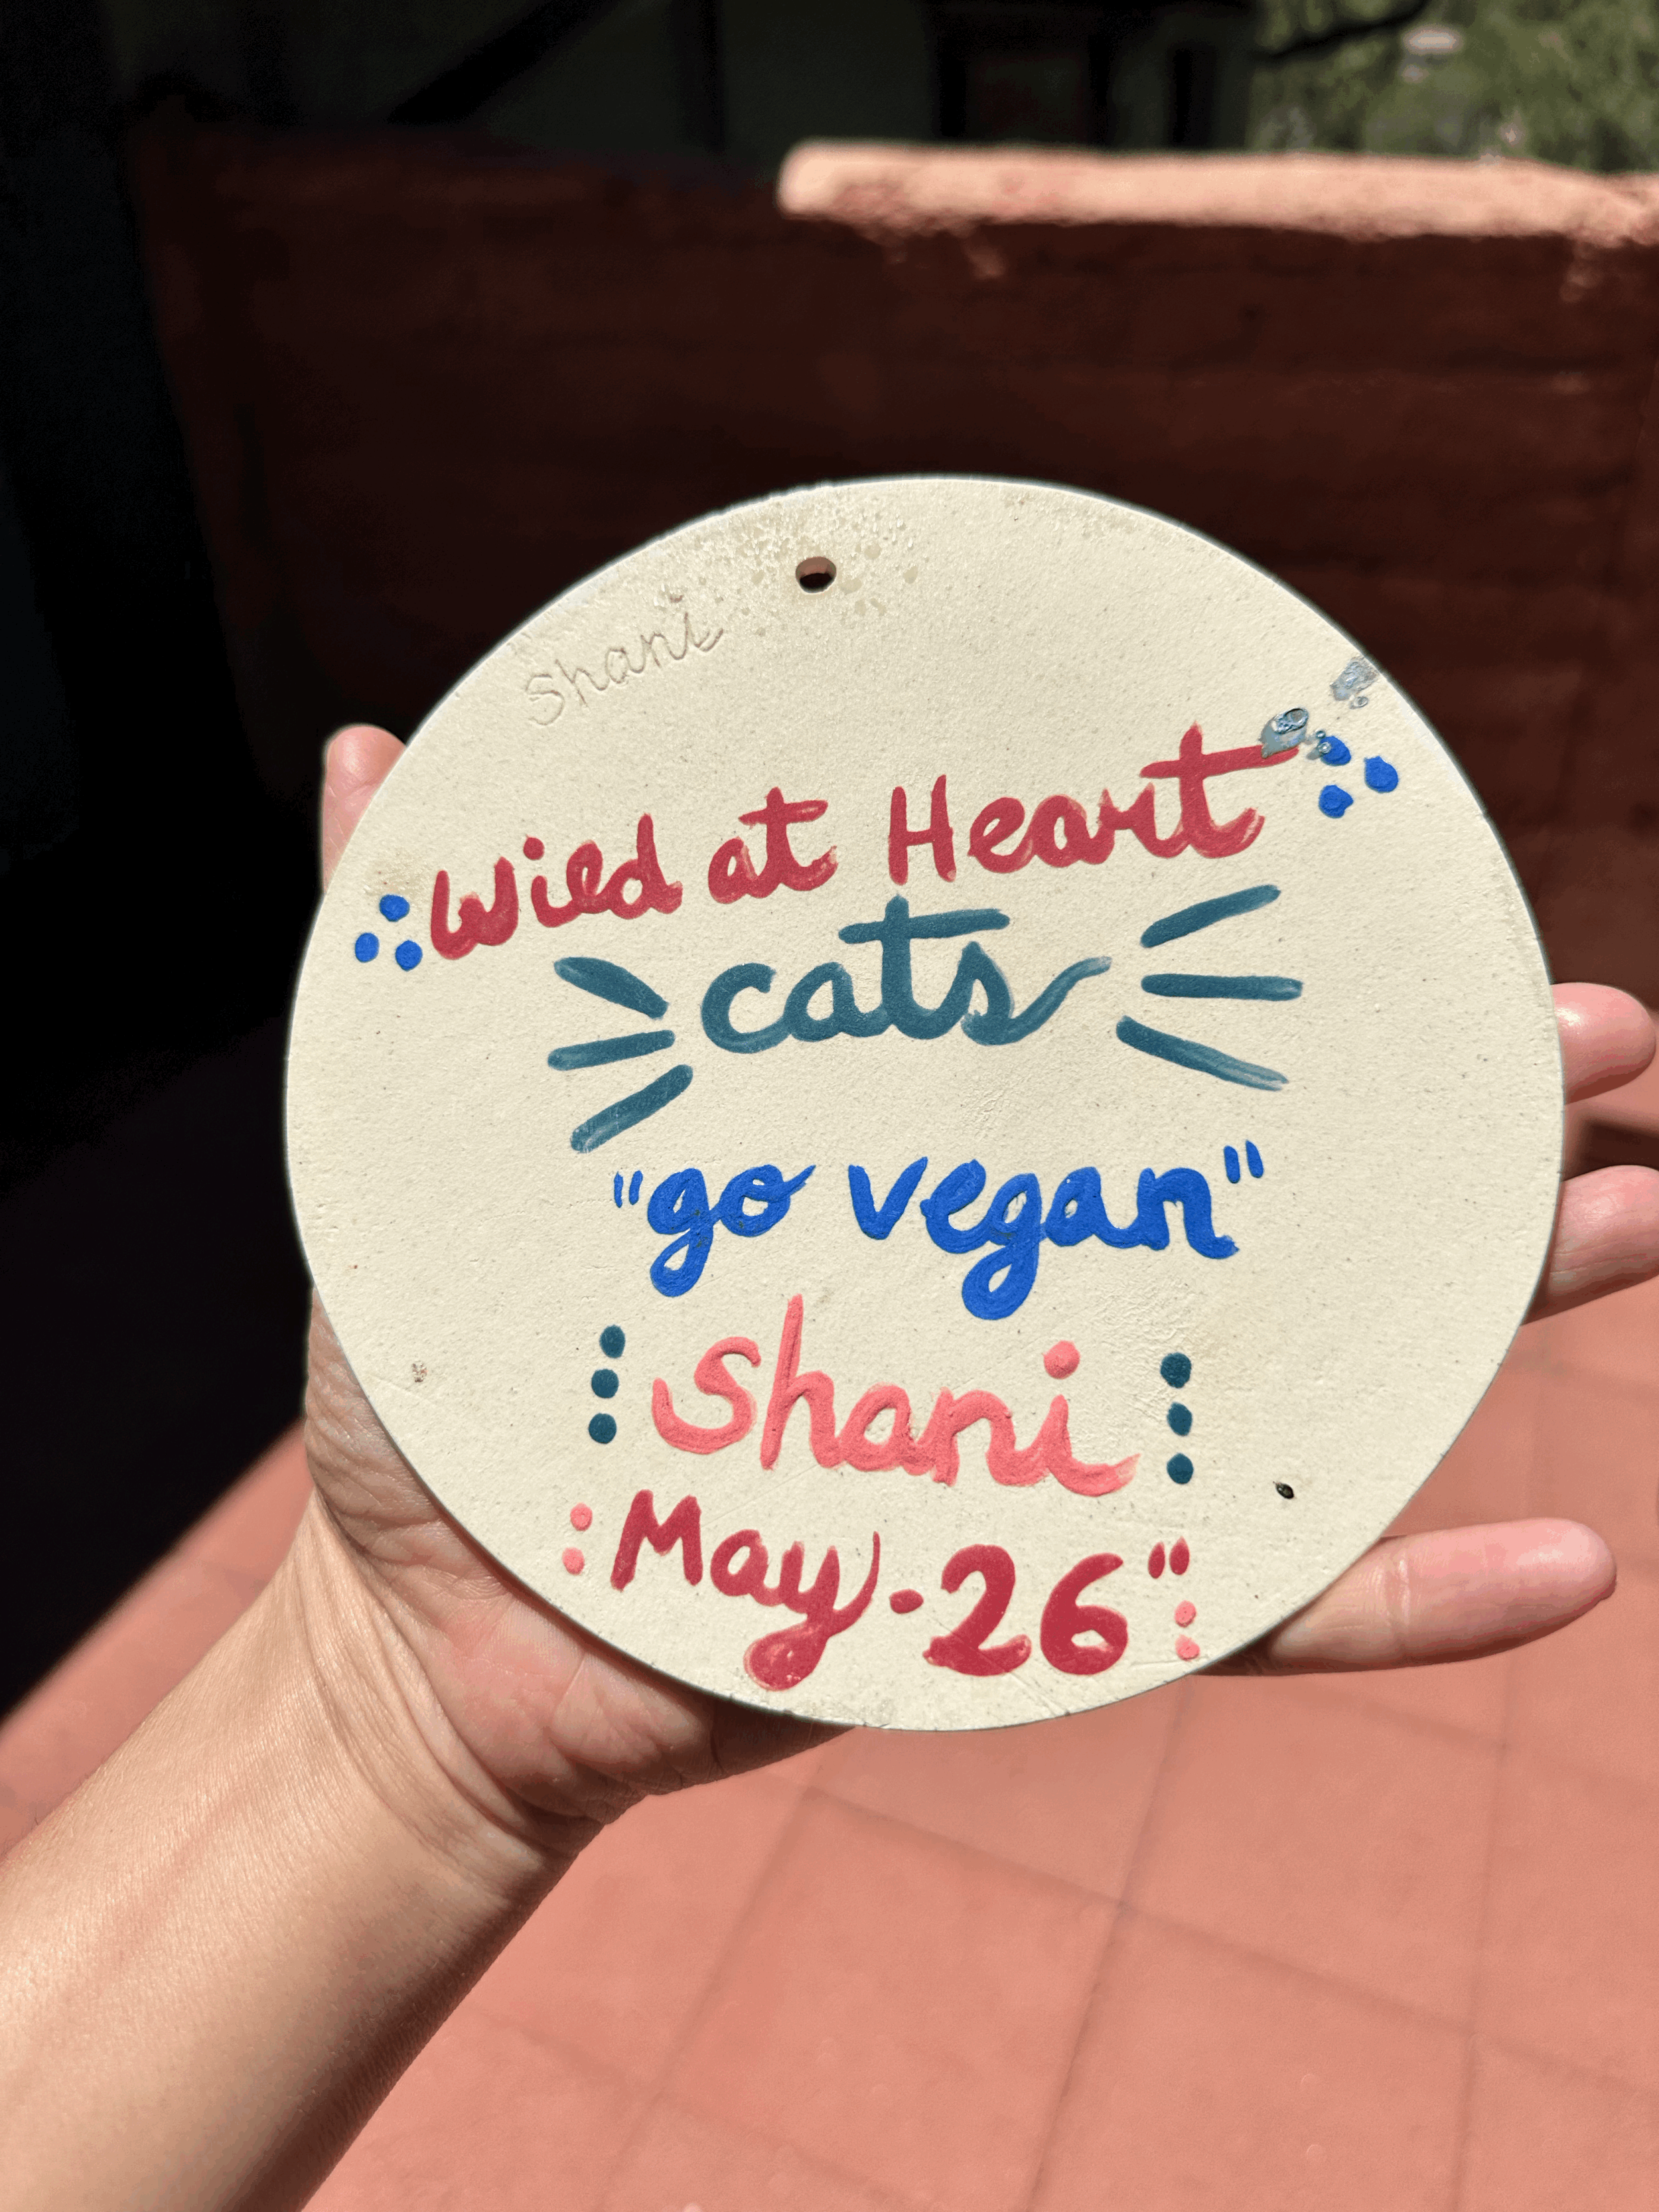 Shani
Wild at Heart
cats
"go vegan"
Shani
May.26"